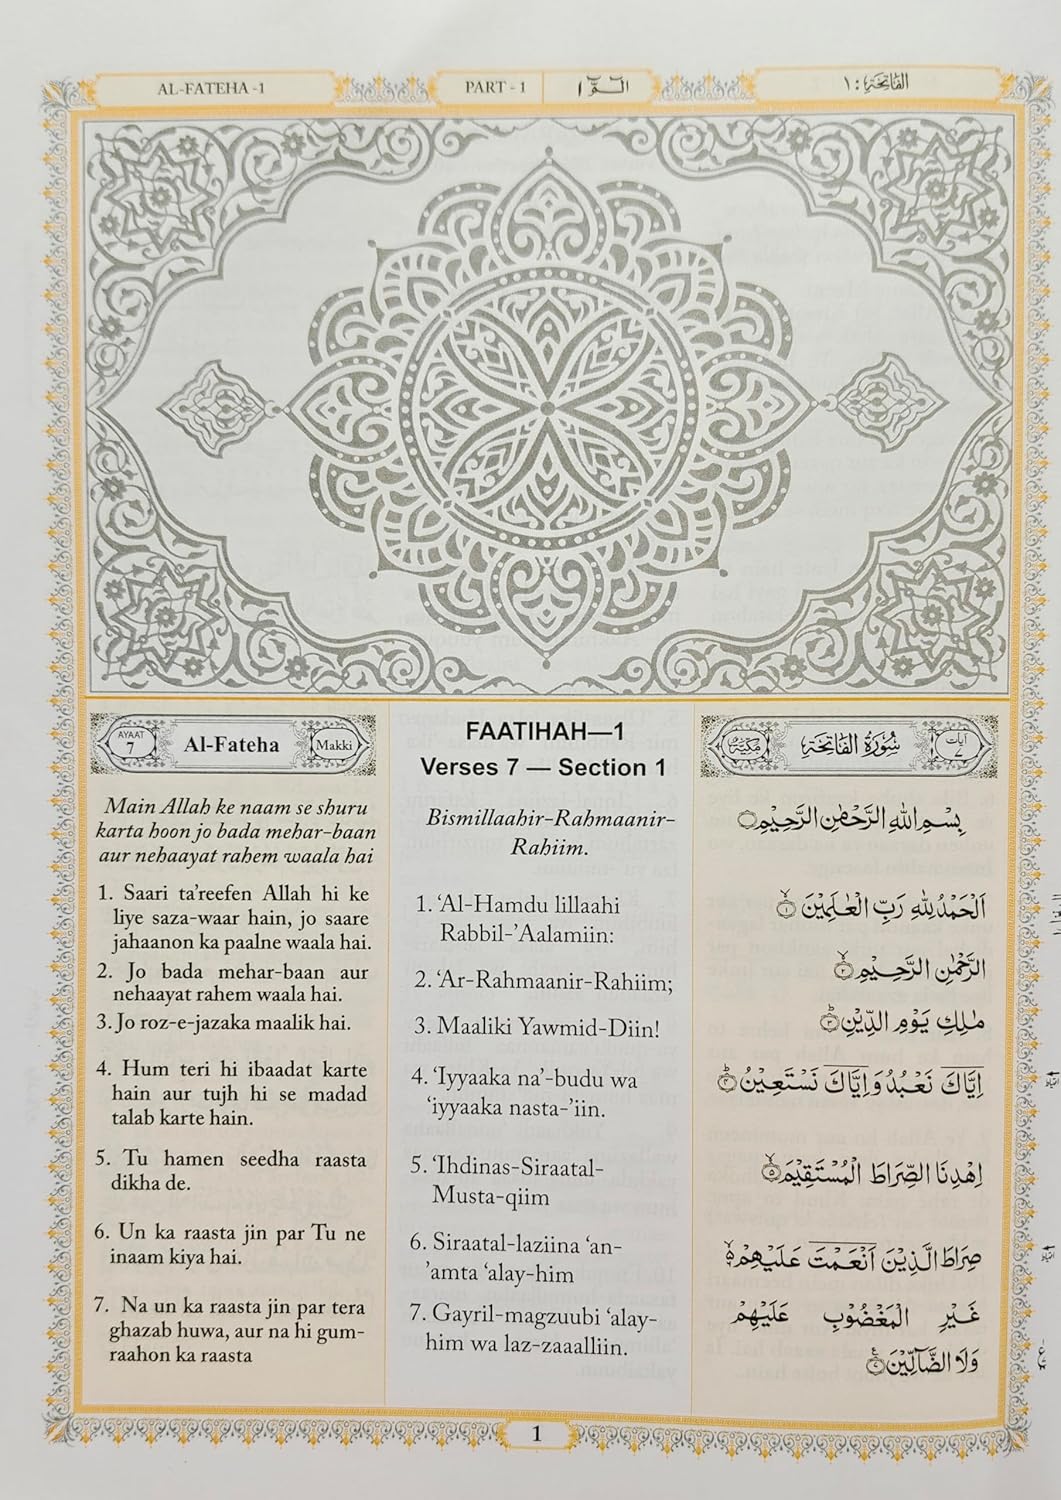 AL-FATEHA -1
PART - 1
الٓـمّٓ ۱
الفَاتِحَة: ۱
AYAAT 7
Al-Fateha
Makki
Main Allah ke naam se shuru
karta hoon jo bada mehar-baan
aur nehaayat rahem waala hai
1. Saari ta'reefen Allah hi ke
liye saza-waar hain, jo saare
jahaanon ka paalne waala hai.
2. Jo bada mehar-baan aur
nehaayat rahem waala hai.
3. Jo roz-e-jazaka maalik hai.
4. Hum teri hi ibaadat karte
hain aur tujh hi se madad
talab karte hain.
5. Tu hamen seedha raasta
dikha de.
6. Un ka raasta jin par Tu ne
inaam kiya hai.
7. Na un ka raasta jin par tera
ghazab huwa, aur na hi gum-
raahon ka raasta
FAATIHAH—1
Verses 7 — Section 1
Bismillaahir-Rahmaanir-
Rahiim.
1. ‘Al-Hamdu lillaahi
Rabbil-’Aalamiin:
2. ‘Ar-Rahmaanir-Rahiim;
3. Maaliki Yawmid-Diin!
4. ‘Iyyaaka na’-budu wa
‘iyyaaka nasta-’iin.
5. ‘Ihdinas-Siraatal-
Musta-qiim
6. Siraatal-laziina ‘an-
’amta ‘alay-him
7. Gayril-magzuubi ‘alay-
him wa laz-zaaalliin.
آیات ۷
سُوْرَةُ الْفَاتِحَةِ
مَكِّيَّةٌ
بِسْمِ اللّٰهِ الرَّحْمٰنِ الرَّحِيْمِ
اَلْحَمْدُ لِلّٰهِ رَبِّ الْعٰلَمِيْنَ ۱
الرَّحْمٰنِ الرَّحِيْمِ ۲
مٰلِكِ يَوْمِ الدِّيْنِ ۳
اِيَّاكَ نَعْبُدُ وَاِيَّاكَ نَسْتَعِيْنُ ۴
اِهْدِنَا الصِّرَاطَ الْمُسْتَقِيْمَ ۵
صِرَاطَ الَّذِيْنَ اَنْعَمْتَ عَلَيْهِمْ ۶
غَيْرِ الْمَغْضُوْبِ عَلَيْهِمْ
وَلَا الضَّآلِّيْنَ ۷
1